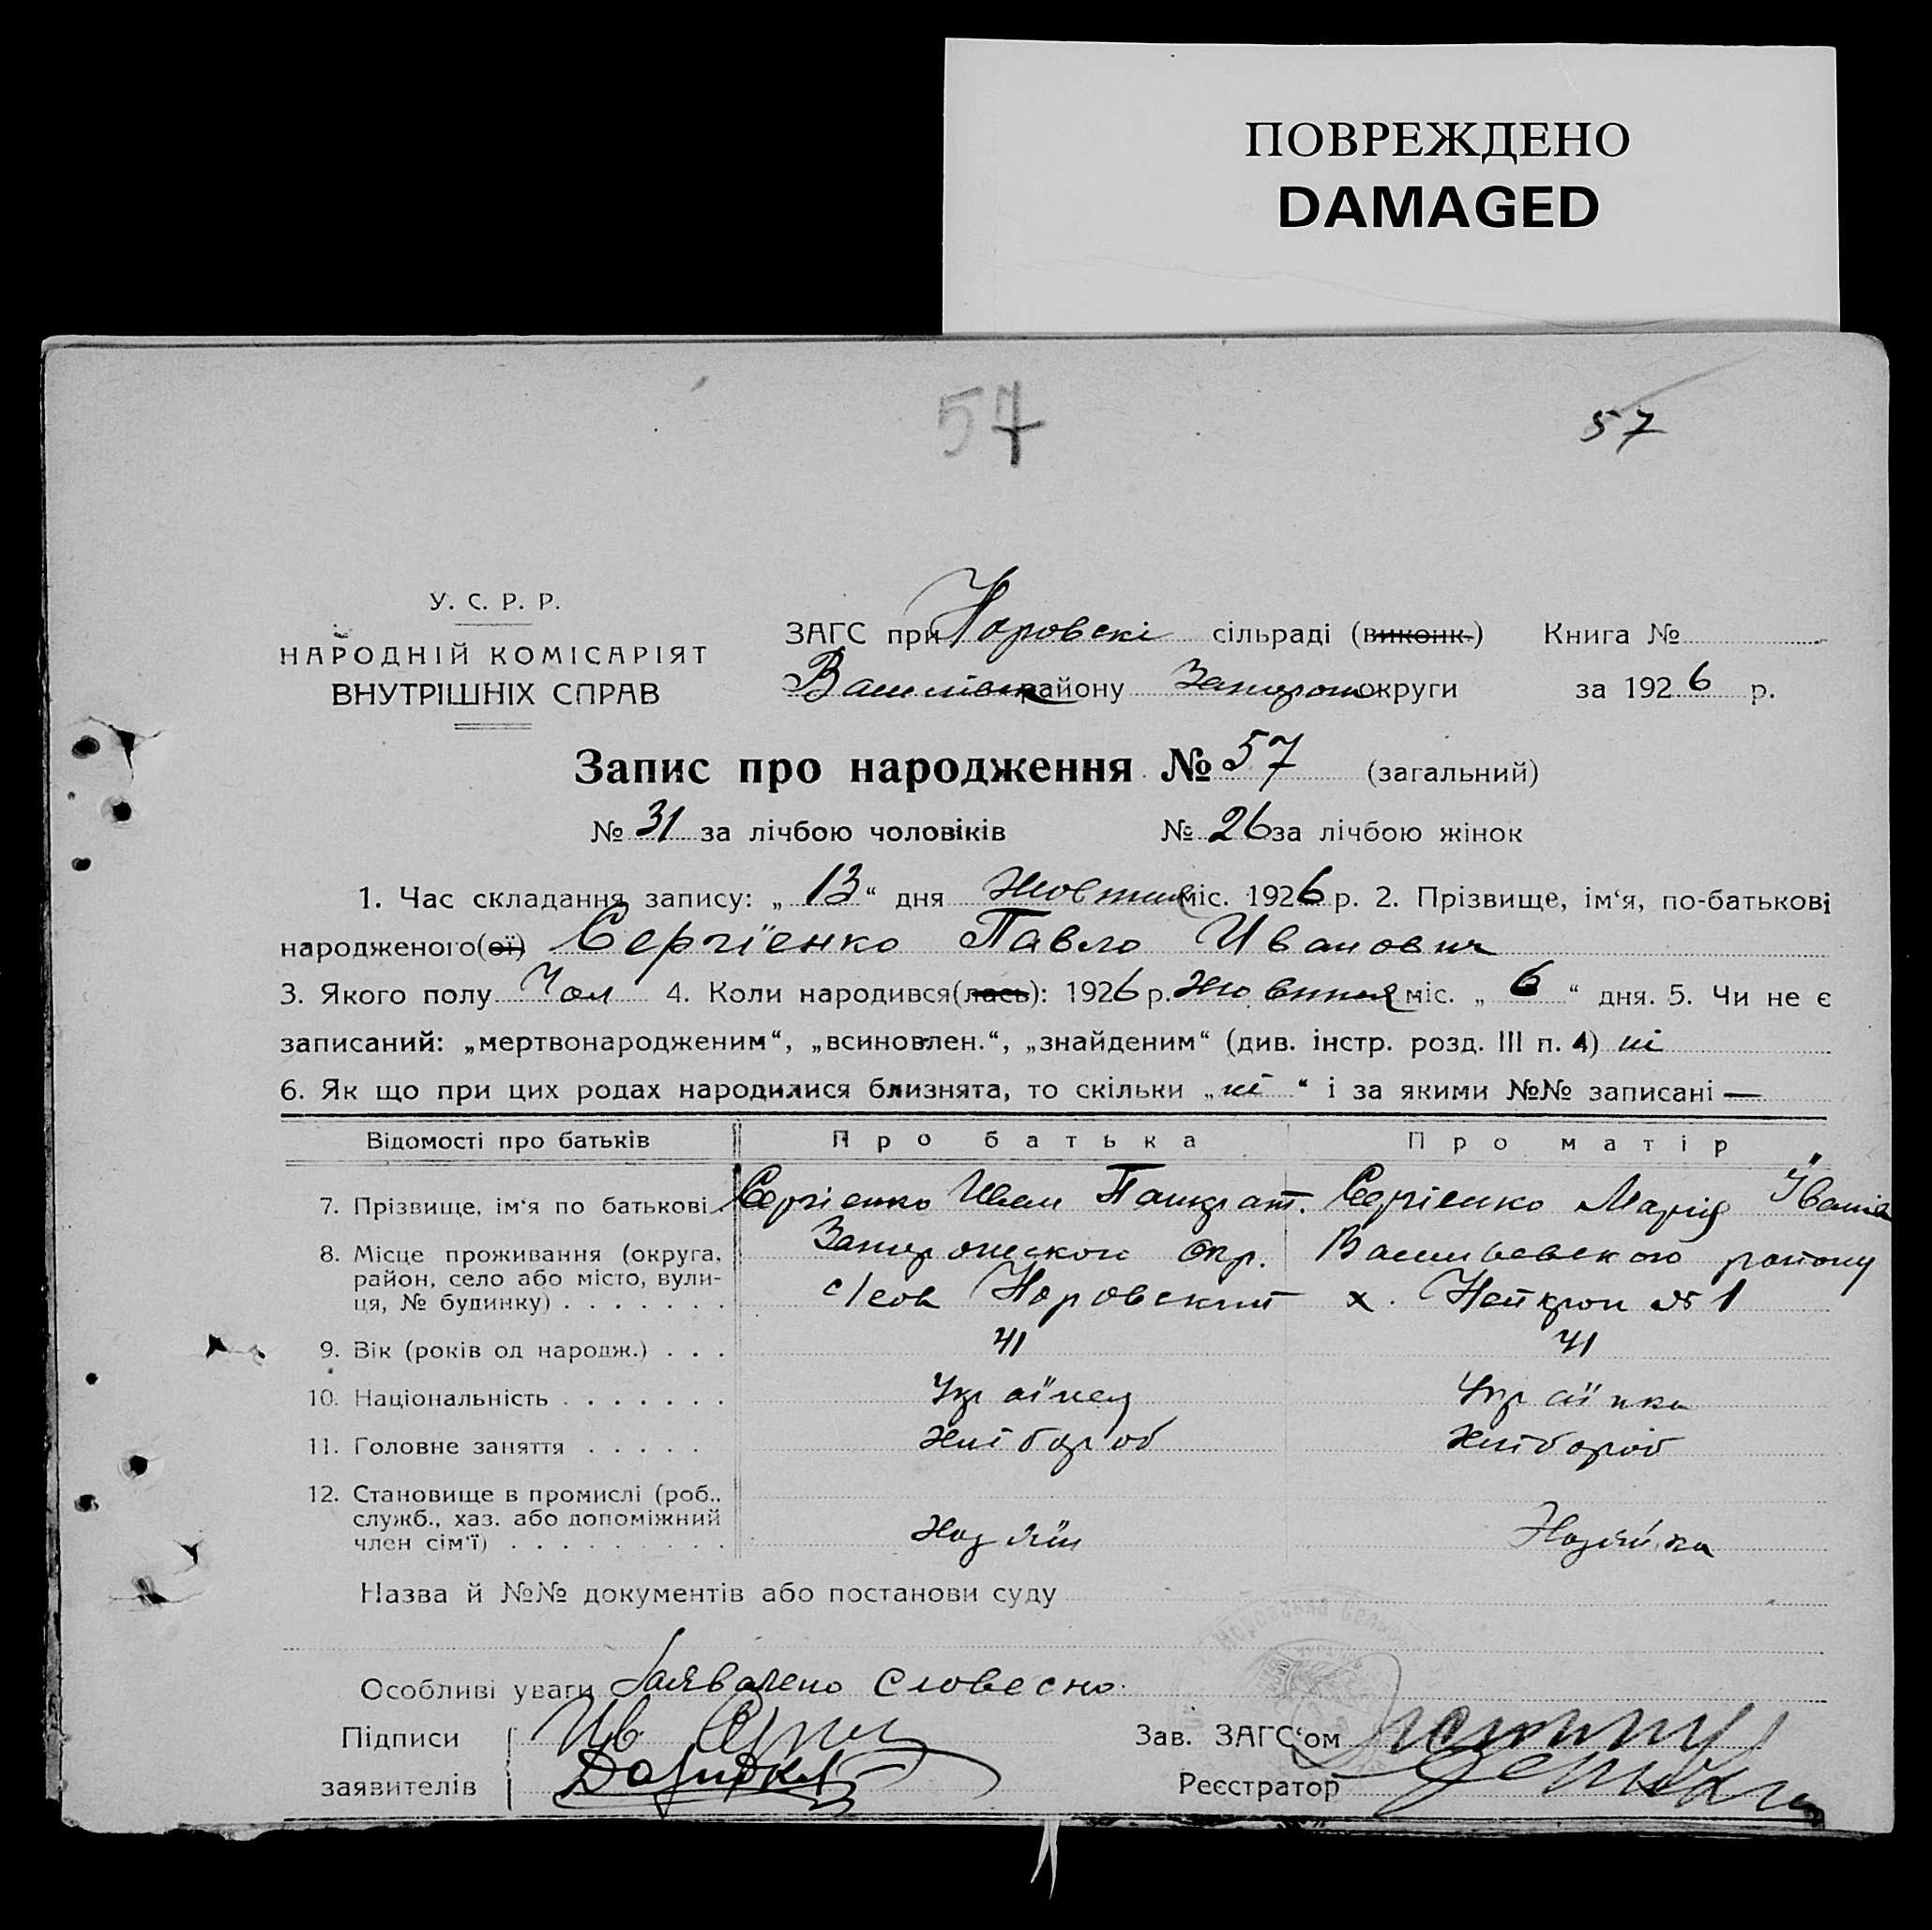 ПОВРЕЖДЕНО
DAMAGED
57
57
У. С. Р. Р.
НАРОДНІЙ КОМІСАРІЯТ
ВНУТРІШНІХ СПРАВ
ЗАГС при Норовскі сільраді (виконк.) Книга №
району округи за 1926 р.
Запис про народження № 57 (загальний)
№ 31 за лічбою чоловіків № 26 за лічбою жінок
1. Час складання запису: „ 13 “ дня Жовтня міс. 1926 р. 2. Прізвище, ім'я, по-батькові
народженого(ої) Сергїенко Павло Иванович
3. Якого полу Чол 4. Коли народився(лась): 1926 р. Жовтня міс. „ 6 “ дня. 5. Чи не є
записаний: „мертвонародженим“, „всиновлен.“, „знайденим“ (див. інстр. розд. III п. 4) ні
6. Як що при цих родах народилися близнята, то скільки „ ні “ і за якими №№ записані —
Відомості про батьків Про батька Про матір
7. Прізвище, ім'я по батькові Сергіенко Иван Панкрат. Сергіенко Марія
8. Місце проживання (округа, окр. району
район, село або місто, вули- Норовский х. № 1
ця, № будинку)
9. Вік (років од народж.) 41 41
10. Національність Українец Українка
11. Головне заняття Хлібороб Хлібороб
12. Становище в промислі (роб.,
служб., хаз. або допоміжний
член сім'ї) Хазяїн Хазяйка
Назва й №№ документів або постанови суду
Особливі уваги Заявлено словесно.
Підписи Зав. ЗАГС'ом
заявителів Реєстратор